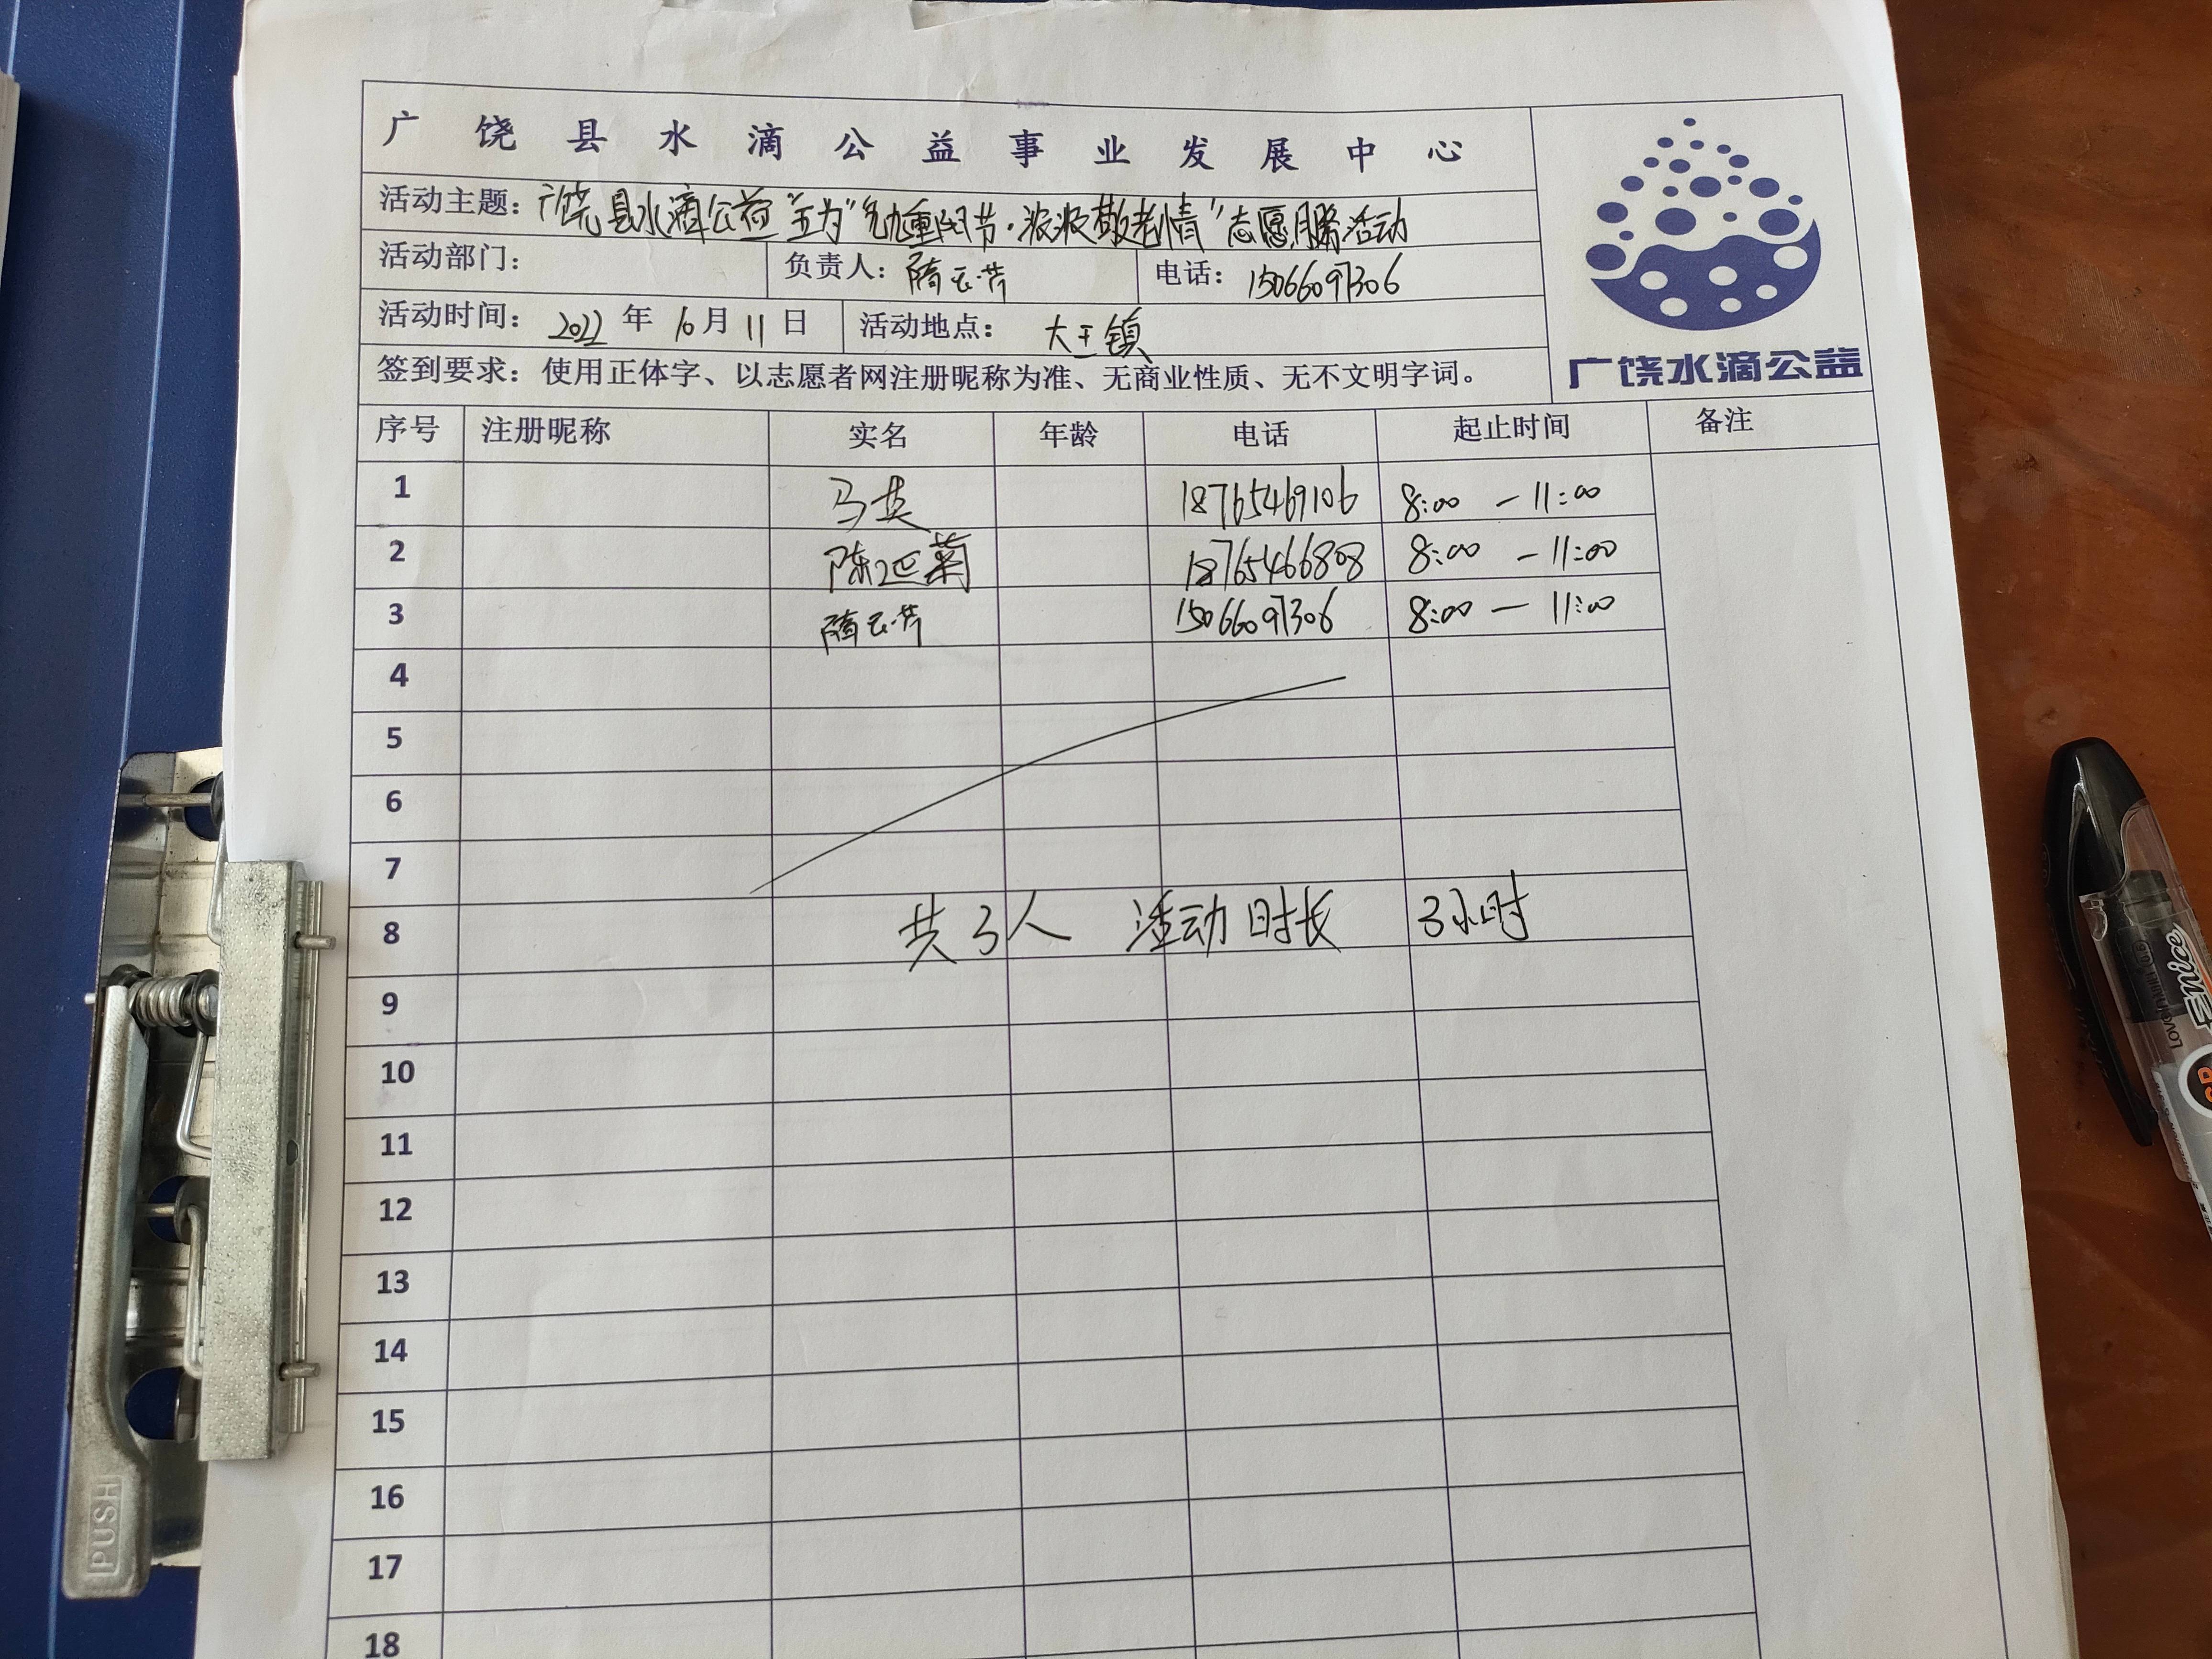 广饶县水滴公益事业发展中心
活动主题：广饶县水滴公益 "九九重阳节·浓浓敬老情"志愿服务活动
活动部门： 负责人：隋云芳 电话：15066097306
活动时间：2022年10月11日 活动地点：大王镇
签到要求：使用正体字、以志愿者网注册昵称为准、无商业性质、无不文明字词。
广饶水滴公益
序号 注册昵称 实名 年龄 电话 起止时间 备注
1 马英 18765469106 8:00 - 11:00
2 陈延菊 18765466808 8:00 - 11:00
3 隋云芳 15066097306 8:00 - 11:00
4
5
6
7
8 共3人 活动时长 3小时
9
10
11
12
13
14
15
16
17
18
PUSH
Enice